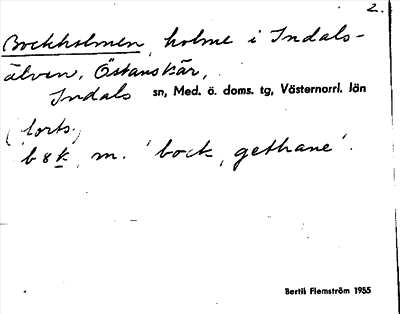 2.
Bockholmen, holme i Indals-
älven, Östanskär,
Indals sn, Med. ö. doms. tg, Västernorrl. län
(forts.)
b8k, m. 'bock, gethane'.
Bertil Flemström 1955